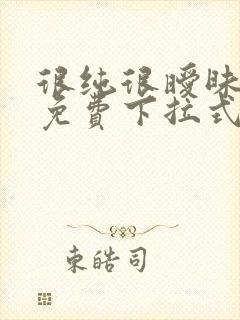 很纯很暧昧
免費下拉式
東皓司